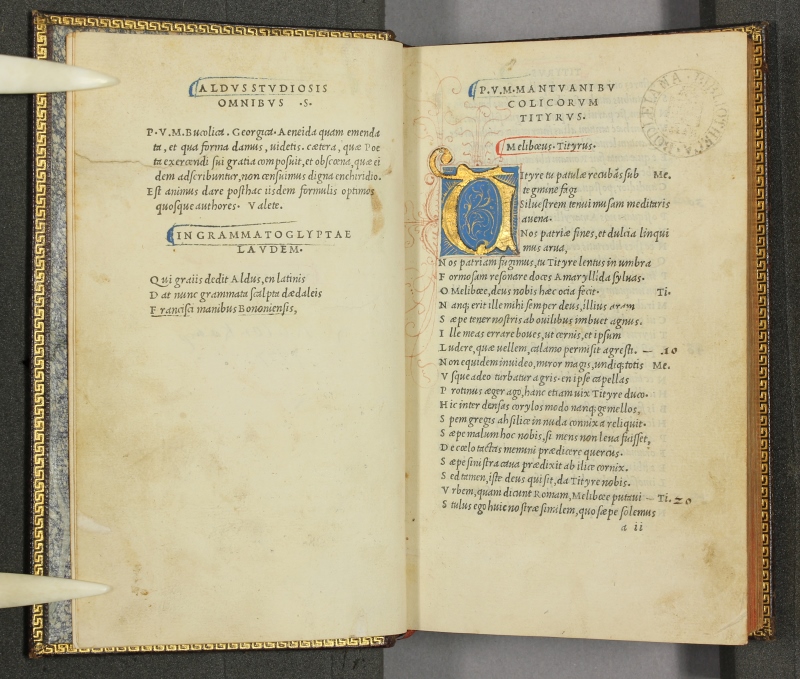 ALDVS STVDIOSIS
OMNIBVS ·S·
P·V·M· Bucolica· Georgica· Aeneida quam emenda
ta, et qua forma damus, uidetis· cætera, quæ Poe
ta exercendi sui gratia composuit, et obscœna, quæ ei
dem adscribuntur, non censuimus digna enchiridio·
Est animus dare posthac iisdem formulis optimos
quosque authores· Valete·
IN GRAMMATOGLYPTAE
LAVDEM·
Qui graiis dedit Aldus, en latinis
Dat nunc grammata scalpta dædaleis
Francisci manibus Bononiensis,
P·V·M·MANTVANI BV
COLICORVM
TITYRVS·
Melibœus· Tityrus·
Tityre tu patulæ recubās sub Me.
tegmine fagi
Siluestrem tenui musam meditaris
auena·
Nos patriæ fines, et dulcia linqui
mus arua,
Nos patriam fugimus, tu Tityre lentus in umbra
Formosam resonare doces Amaryllida syluas·
O Melibœe, deus nobis hæc ocia fecit· Ti.
Nanq; erit ille mihi semper deus, illius aram
Sæpe tener nostris ab ouilibus imbuet agnus.
Ille meas errare boues, ut cernis, et ipsum
Ludere, quæ uellem, calamo permisit agresti. — 10
Non equidem inuideo, miror magis, undiq; totis Me.
Vsque adeo turbatur agris· en ipse capellas
Protinus æger ago, hanc etiam uix Tityre duco·
Hic inter densas corylos modo nanq; gemellos,
Spem gregis ah silice in nuda connixa reliquit·
Sæpe malum hoc nobis, si mens non leua fuisset,
De cœlo tactas memini prædicere quercus·
Sæpe sinistra caua prædixit ab ilice cornix.
Sed tamen, iste deus qui sit, da Tityre nobis.
Vrbem, quam dicunt Romam, Melibœe putaui — Ti. 20
Stulus ego huic nostræ similem, quo sæpe solemus
a ii